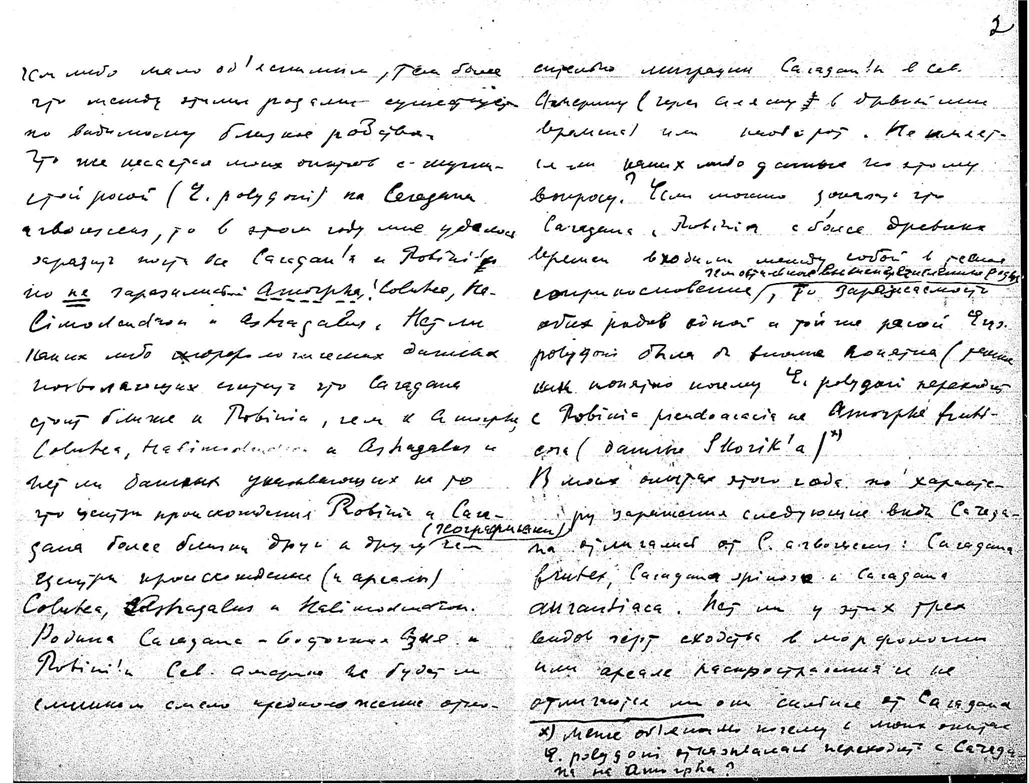 2
чем либо мало об'яснимым, тем более
что между этими родами существует
по видимому близкое родство.
Что же касается моих опытов с мучни-
стой росой (E. polygoni) на Caragana
arborescens, то в этом году мне удалось
заразить почти все Caragan'ы и Robini'и
но не заразились Amorpha! Colutea, Ha-
limodendron и Astragalus. Нет ли
каких либо морфологических данных
позволяющих считать что Caragana
стоит ближе к Robinia, чем к Amorpha,
Colutea, Halimodendron и Astragalus и
нет ли данных указывающих на то
что центры происхождения Robinia и Cara-
gana более близки друг к другу (географически) чем
центры происхождения (и ареалы)
Colutea, Astragalus и Halimodendron.
Родина Caragana – восточная Азия и
Robini'и Сев. Америка не будет ли
слишком смело предположение отно-
сительно миграции Caragan'ы в Сев.
Америку (через Аляску в
времена) или наоборот. Не имеет-
ся ли каких либо данных по этому
вопросу? Если можно что
Caragana и Robinia с более древних
времен входили между собой в тесное
соприкосновение, чем остальные
то заражаемость
обих родов одной и той же расой Erys.
polygoni была б вполне понятна (
понятно почему E. polygoni переходит
с Robinia pseudoacacia на Amorpha fruti-
cosa (данные Skorik'а) x)
В моих опытах этого года по характе-
ру заражения следующие виды Caraga-
na отличались от C. arborescens: Caragana
frutex, Caragana spinosa и Caragana
aurantiaca. Нет ли у этих трех
видов черт сходства в морфологии
или ареале распространения и не
отличаются ли они сильнее от Caragana
x) Менее об'яснимо почему в моих опытах
E. polygoni отказывалась переходить с Caraga-
na на Amorpha?